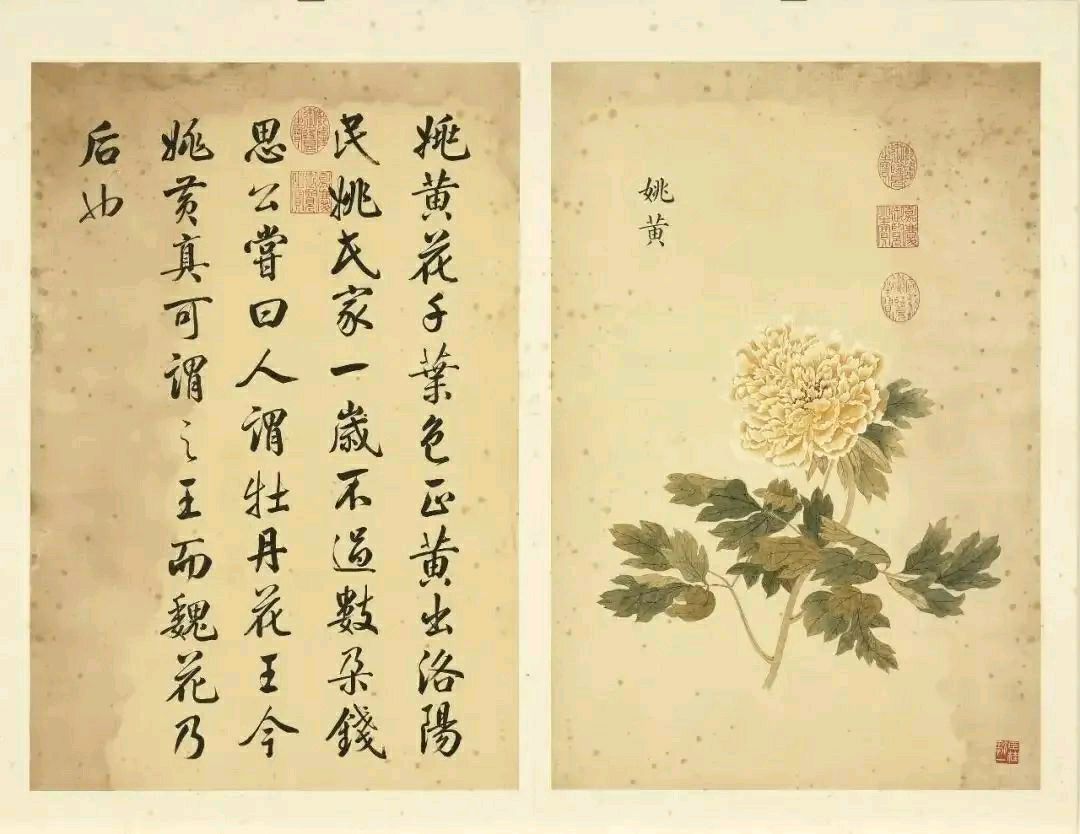 姚黄
姚黄花千葉色正黄出洛陽
民姚氏家一歲不過數朵錢
思公嘗曰人謂牡丹花王今
姚黄真可謂之王而魏花乃
后也